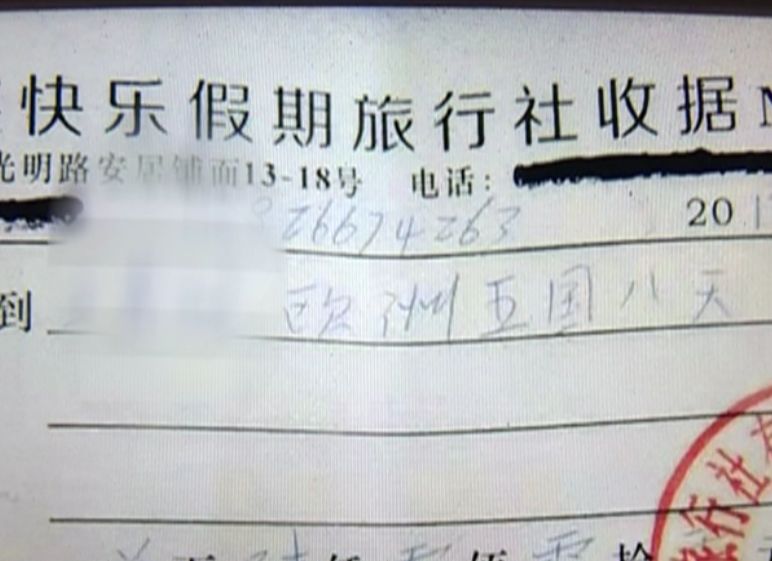 快乐假期旅行社收据
光明路安居铺面13-18号 电话:
26674263 20
到 欧洲五国八天
行社